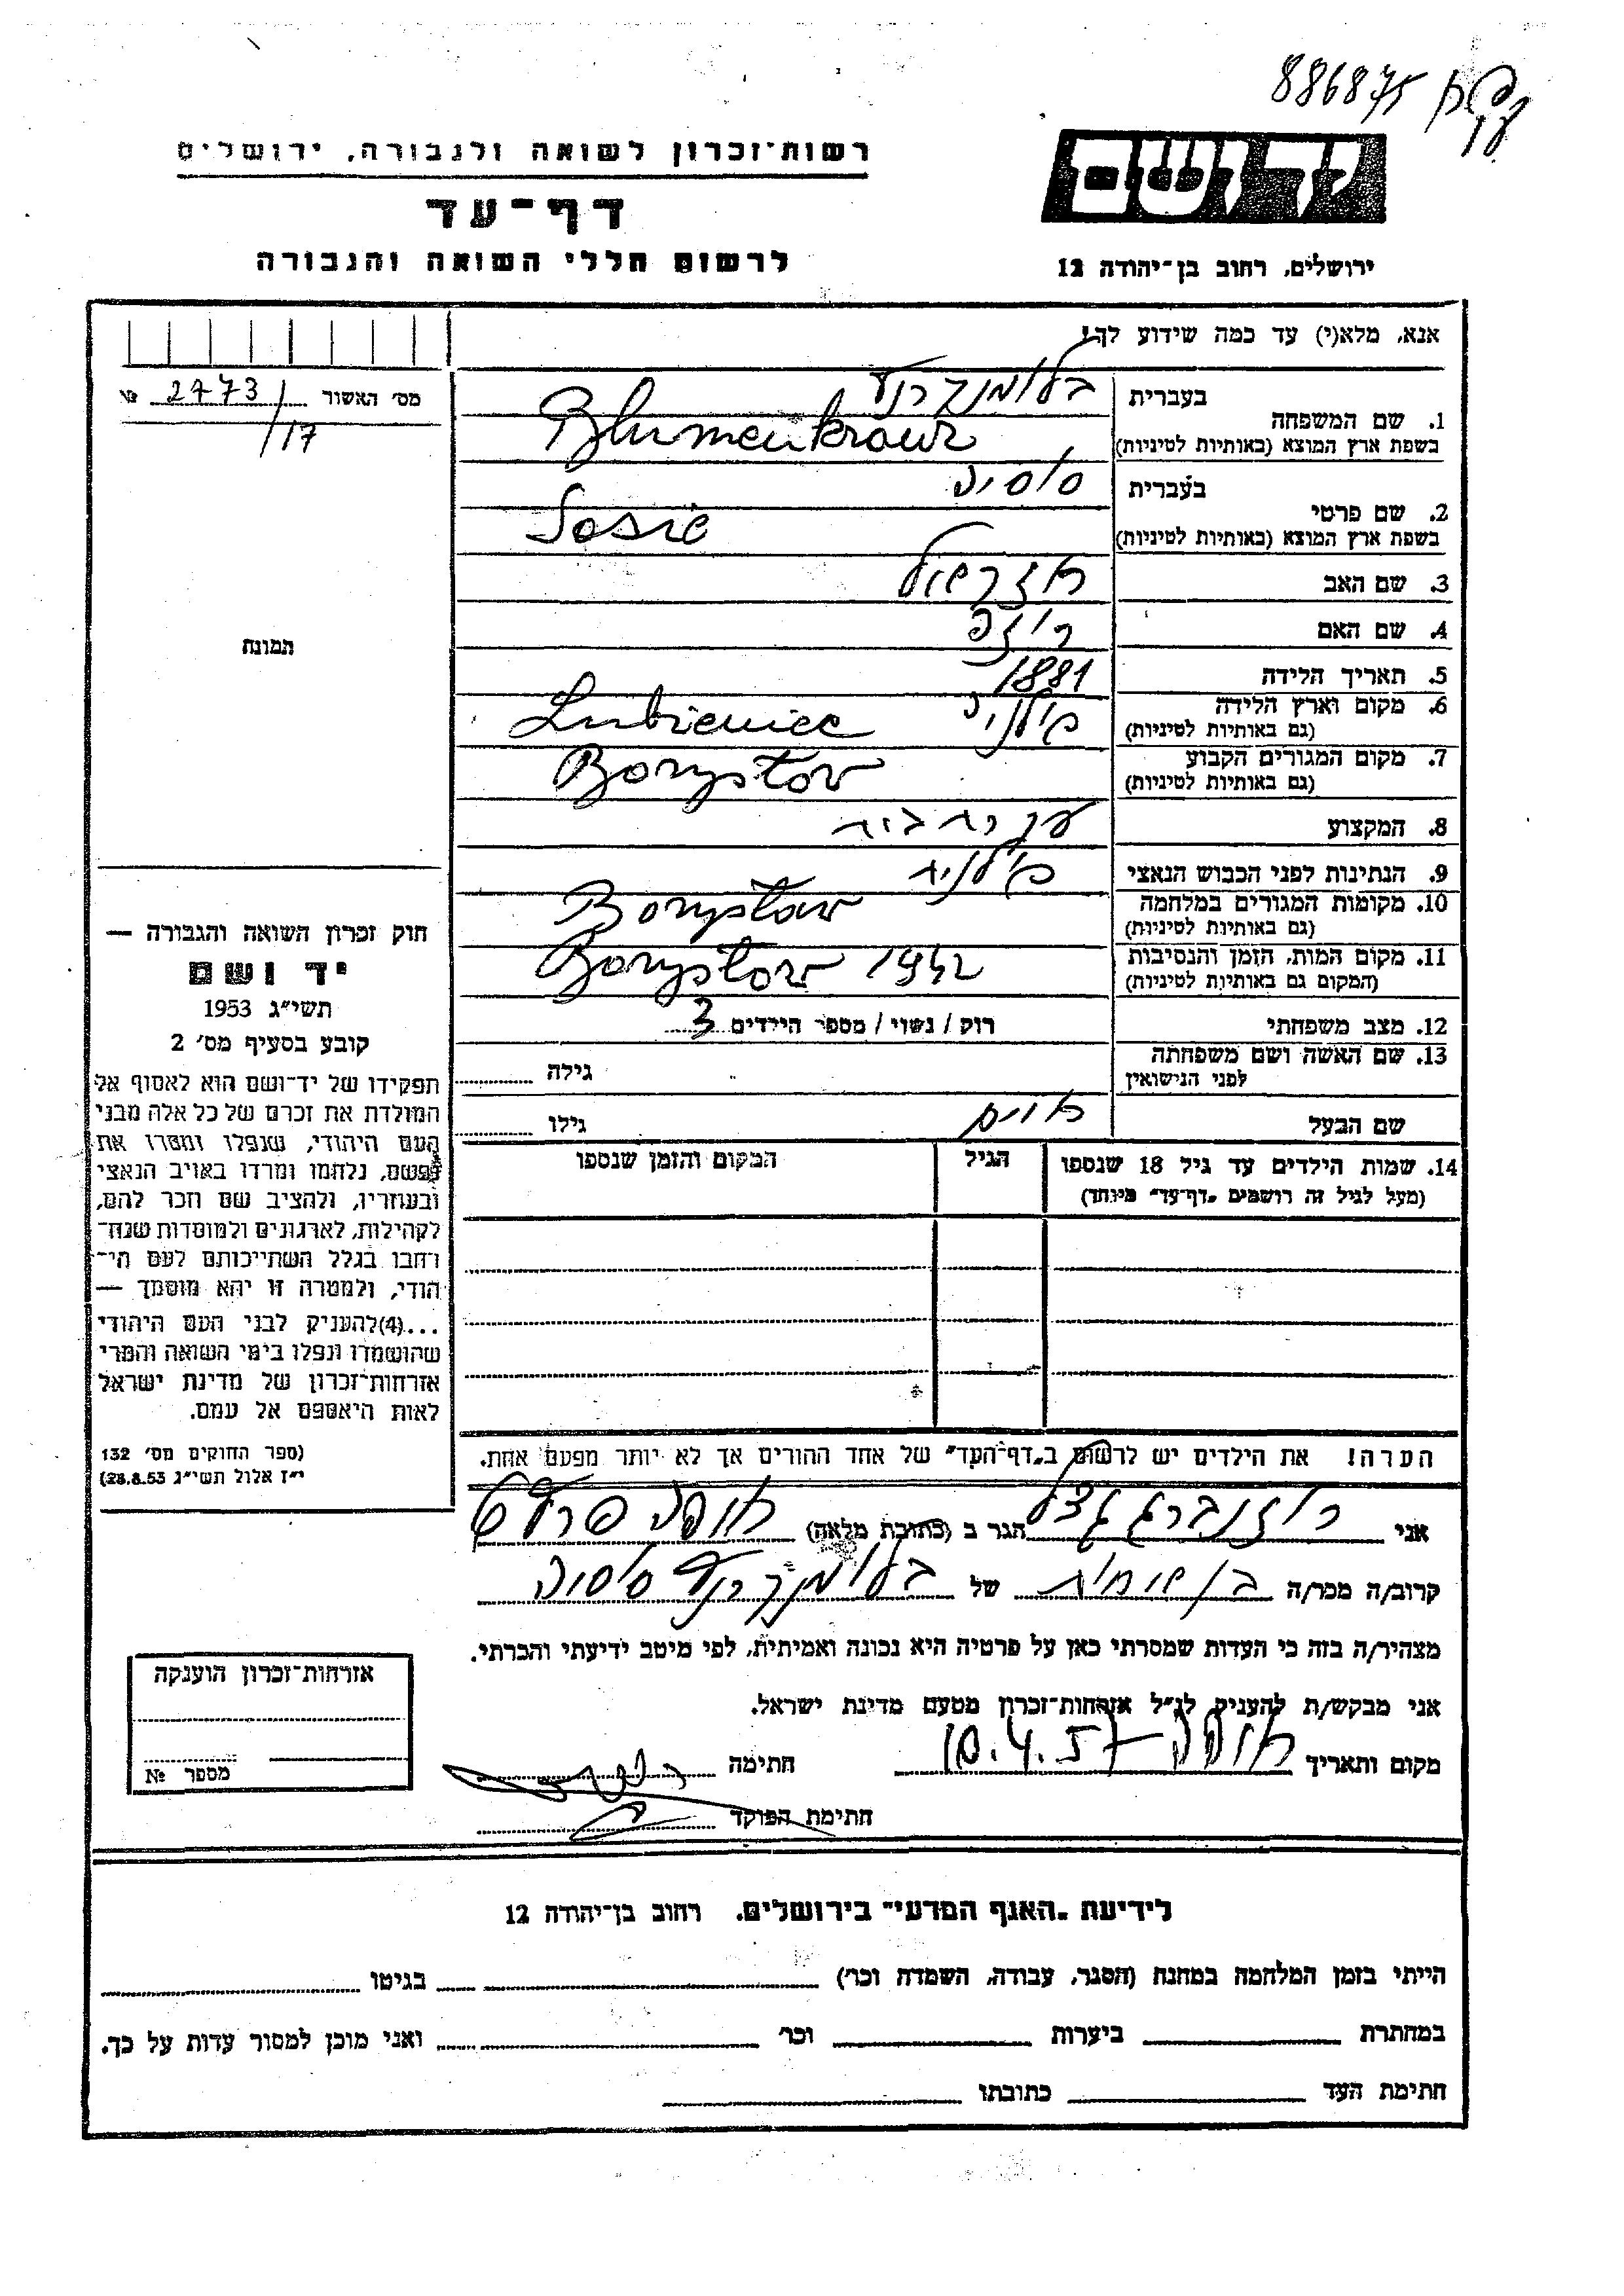 886875
רשות־זכרון לשואה ולגבורה, ירושלים
יד ושם
דף־עד
לרשום חללי השואה והגבורה
ירושלים, רחוב בן־יהודה 12
אנא, מלא(י) עד כמה שידוע לך!
מס׳ האשור 2773 №
17
1. שם המשפחה
בעברית
בשפת ארץ המוצא (באותיות לטיניות) Blumenkranz
2. שם פרטי
בעברית סוסיה
בשפת ארץ המוצא (באותיות לטיניות) Sosie
3. שם האב עזריאל
4. שם האם רוזה
5. תאריך הלידה 1881
6. מקום וארץ הלידה
(גם באותיות לטיניות) פולניה Lubieniec
7. מקום המגורים הקבוע
(גם באותיות לטיניות) Boryslov
8. המקצוע עקרת בית
9. הנתינות לפני הכבוש הנאצי פולנית
10. מקומות המגורים במלחמה
(גם באותיות לטיניות) Boryslav
11. מקום המות, הזמן והנסיבות
(המקום גם באותיות לטיניות) Boryslov 1942
12. מצב משפחתי רוק / נשוי / מספר הילדים 3
13. שם האשה ושם משפחתה
לפני הנישואין גילה
שם הבעל גילו
14. שמות הילדים עד גיל 18 שנספו
(מעל לגיל זה רושמים "דף־עד" מיוחד)
הגיל
המקום והזמן שנספו
הערה! את הילדים יש לרשום ב"דף־העד" של אחד ההורים אך לא יותר מפעם אחת.
תמונה
חוק זכרון השואה והגבורה —
יד ושם
תשי״ג 1953
קובע בסעיף מס׳ 2
תפקידו של יד־ושם הוא לאסוף אל
המולדת את זכרם של כל אלה מבני
העם היהודי, שנפלו ומסרו את
נפשם, נלחמו ומרדו באויב הנאצי
ובעוזריו, ולהציב שם וזכר להם,
לקהילות, לארגונים ולמוסדות שנח־
רחבו בגלל השתייכותם לעם הי־
הודי, ולמטרה זו יהא מוסמך —
...(4)להעניק לבני העם היהודי
שהושמדו ונפלו בימי השואה והמרי
אזרחות־זכרון של מדינת ישראל
לאות היאספם אל עמם.
(ספר החוקים מס׳ 132
י״ז אלול תשי״ג 28.8.53)
אני רוזנברג הגר ב (כתובת מלאה)
קרוב/ה מכר/ה של סוסיה
מצהיר/ה בזה כי העדות שמסרתי כאן על פרטיה היא נכונה ואמיתית, לפי מיטב ידיעתי והכרתי.
אני מבקש/ת להעניק לנ״ל אזרחות־זכרון מטעם מדינת ישראל.
מקום ותאריך 10.4.57 חתימה
חתימת הפוקד
אזרחות־זכרון הוענקה
מספר №
לידיעת "האגף המדעי" בירושלים. רחוב בן־יהודה 12
הייתי בזמן המלחמה במחנה (הסגר, עבודה, השמדה וכר׳) בגיטו
במחתרת ביערות וכר׳ ואני מוכן למסור עדות על כך.
חתימת העד כתובתו